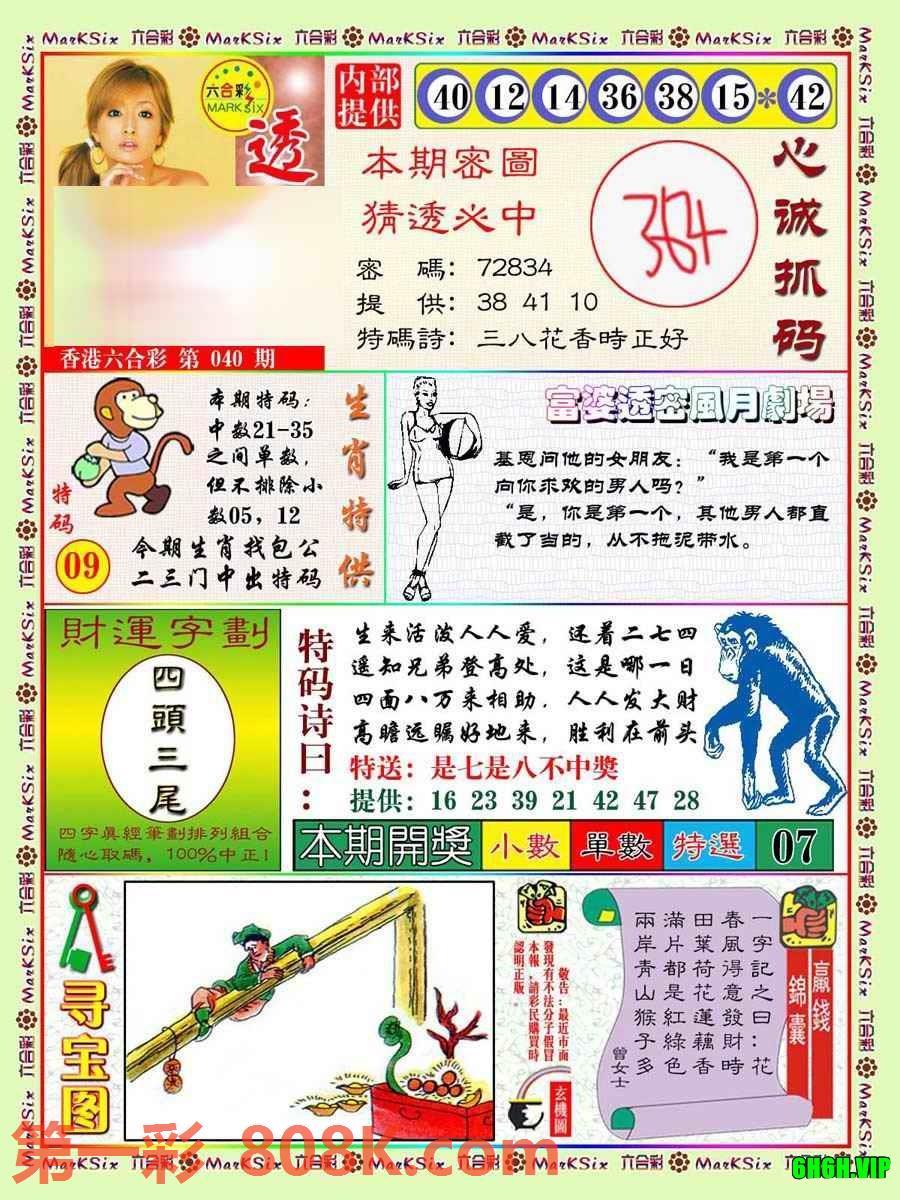 MarKSix 六合彩 MarKSix 六合彩 MarKSix 六合彩 MarKSix 六合彩 MarKSix 六合彩
六合彩
MARK SIX
透
香港六合彩 第 040 期
内部
提供
40 12 14 36 38 15 * 42
本期密圖
猜透必中
密 碼：72834
提 供：38 41 10
特碼詩：三八花香時正好
384
心诚抓码
本期特码：
中数21-35
之间单数，
但不排除小
数05，12
今期生肖找包公
二三门中出特码
特码
09
生肖特供
富婆透密風月劇場
基恩问他的女朋友：“我是第一个
向你求欢的男人吗？”
“是，你是第一个，其他男人都直
截了当的，从不拖泥带水。
財運字劃
四頭三尾
四字真經筆劃排列組合
隨心取碼，100%中正!
特码诗曰：
生来活泼人人爱，还着二七四
遥知兄弟登高处，这是哪一日
四面八万来相助，人人发大财
高瞻远瞩好地来，胜利在前头
特送：是七是八不中獎
提供：16 23 39 21 42 47 28
本期開獎 小數 單數 特選 07
寻宝图
敬告：最近市面
發現有不法分子假冒
本報，請彩民購買時
認明正版。
玄機圖
一字記之曰：花
春風得意發財時
田葉荷花蓮藕香
滿片都是紅綠色
兩岸青山猴子多
曾女士
贏錢
錦囊
第一彩 808k.com
MarKSix 六合彩 MarKSix 六合彩 MarKSix 六合彩 MarKSix 六合彩 MarKSix
6H6H.VIP